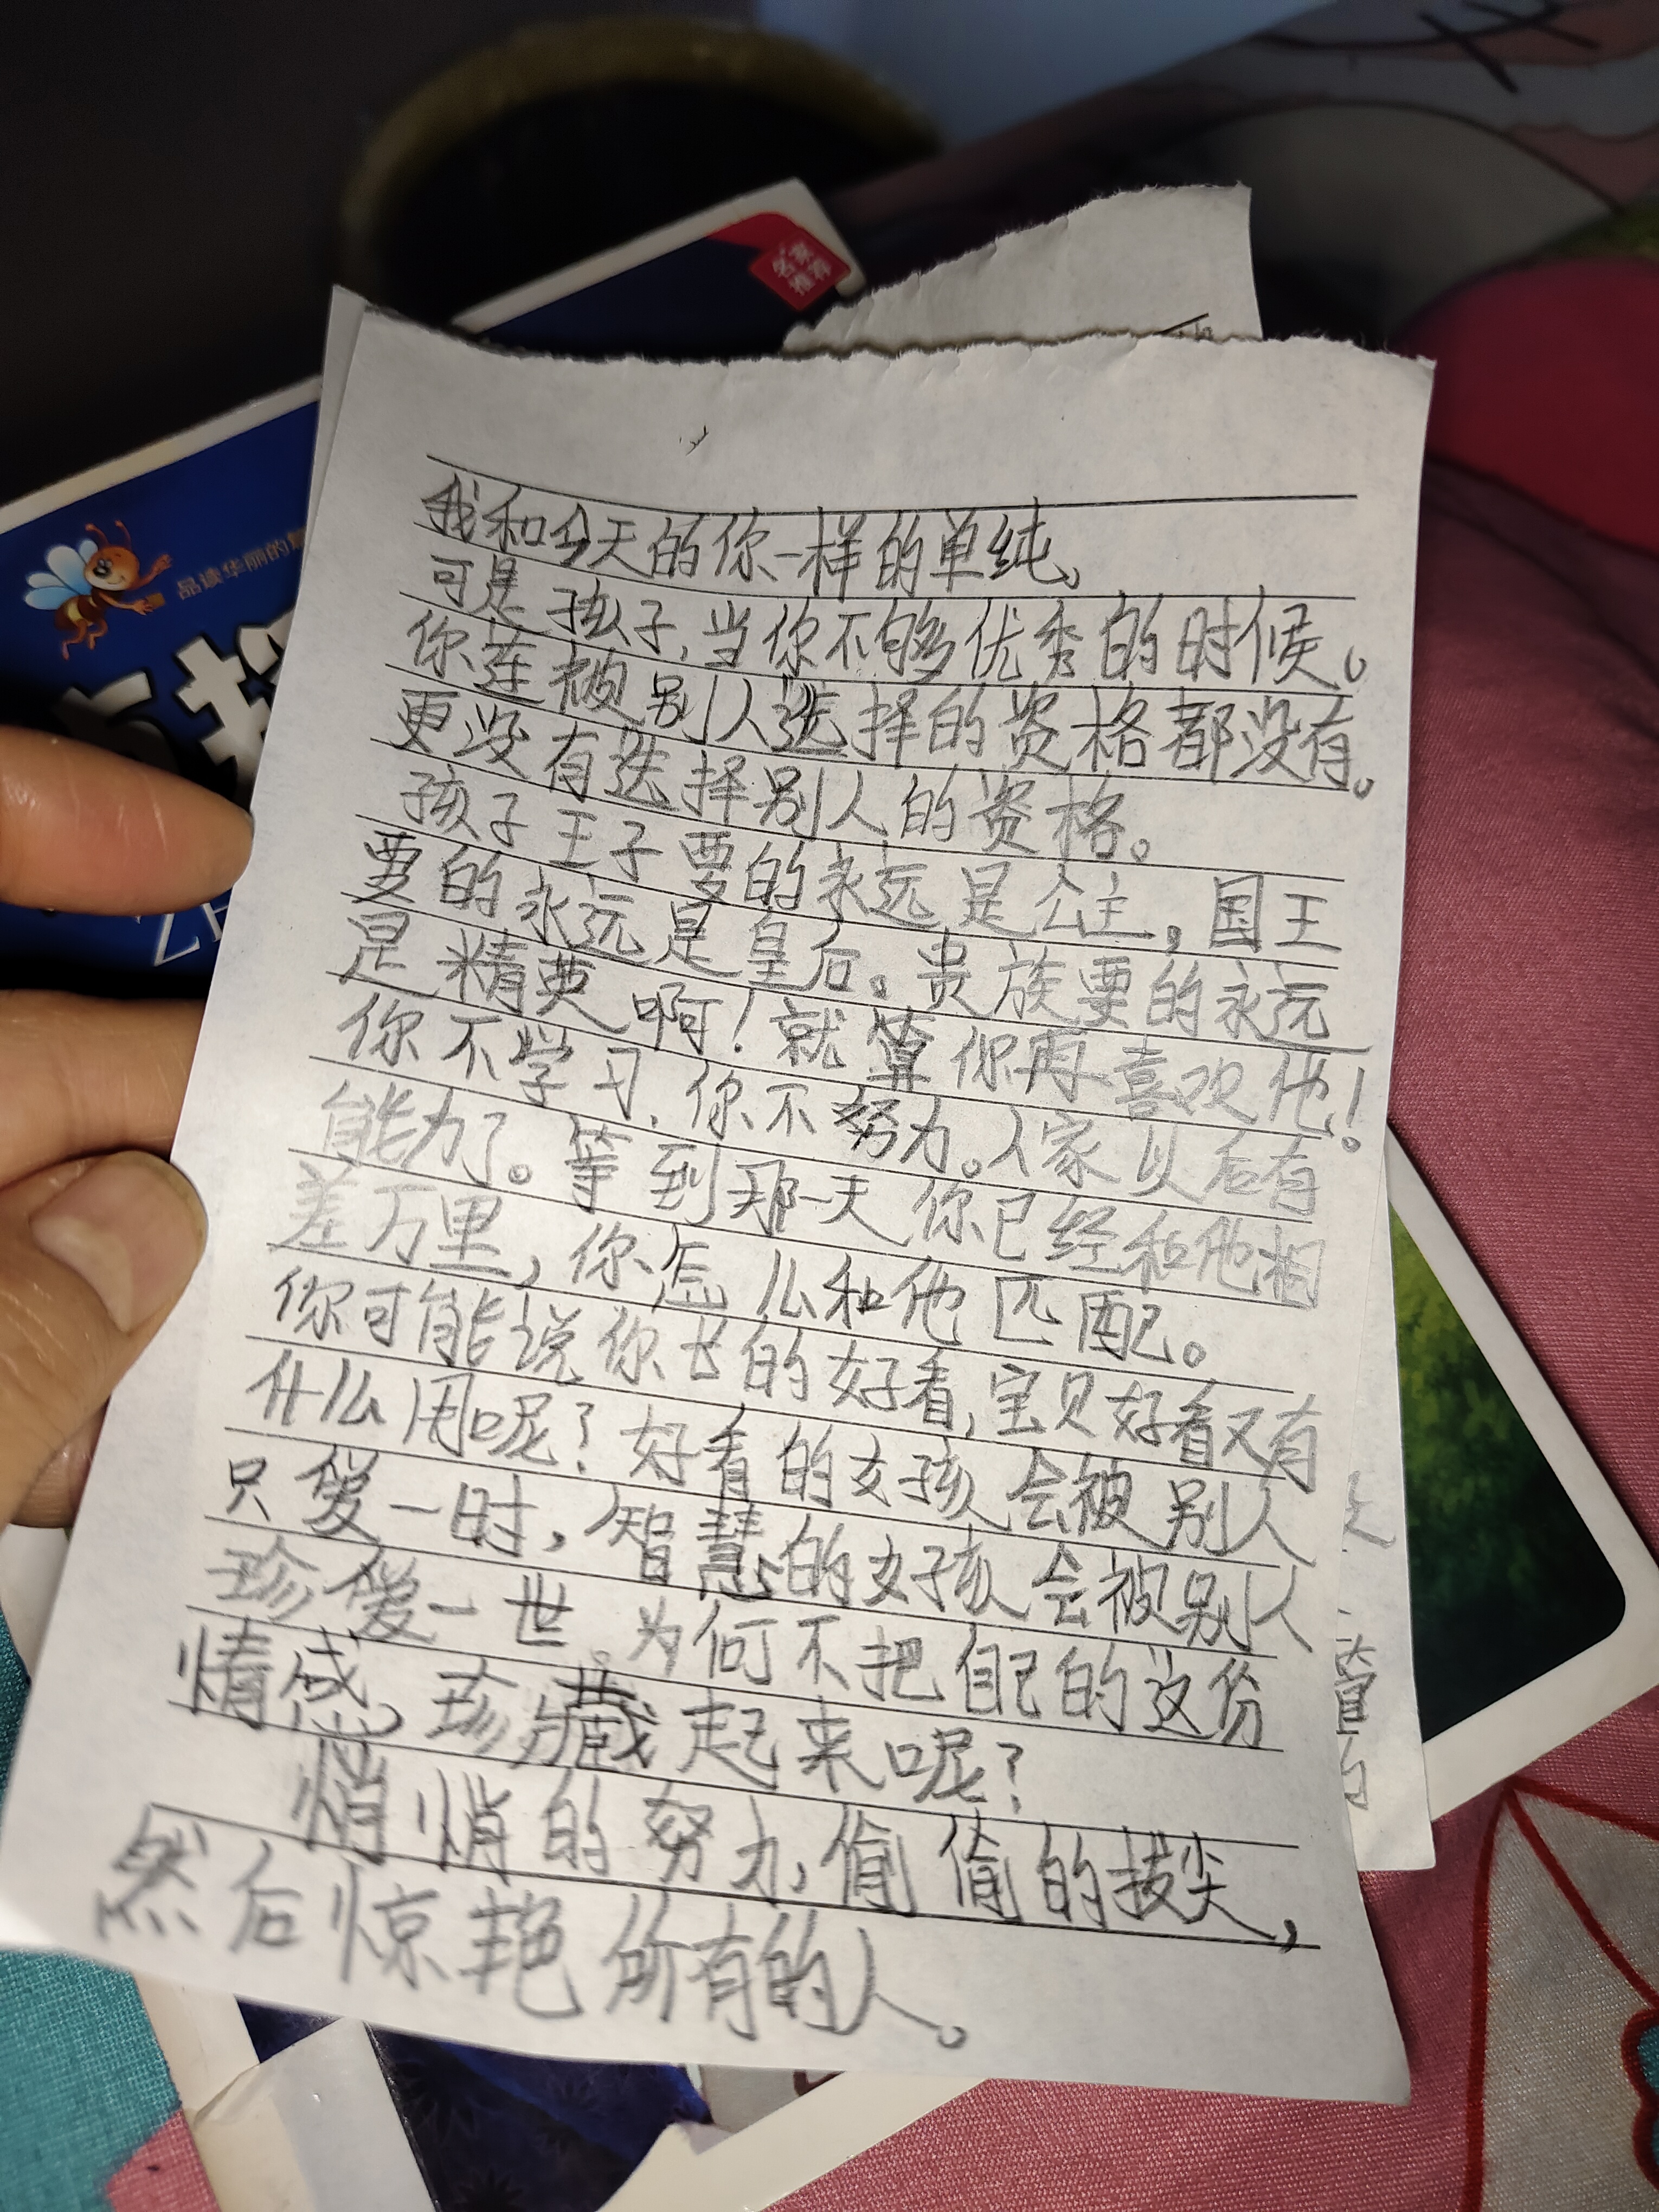 名家
推荐
品读华丽的
ZH
我和今天的你一样的单纯、
可是孩子,当你不够优秀的时候。
你连被别人选择的资格都没有。
更没有选择别人的资格。
孩子王子要的永远是公主,国王
要的永远是皇后。贵族要的永远
是精典啊!就算你再喜欢他!
你不学习、你不努力。人家以后有
能力了。等到那一天你已经和他相
差万里,你怎么和他匹配。
你可能说你长的好看,宝贝好看又有
什么用呢?好看的女孩会被别人
只爱一时,智慧的女孩会被别人
珍爱一世。为何不把自己的这份
情感,珍藏起来呢?
悄悄的努力,偷偷的拔尖,
然后惊艳所有的人。